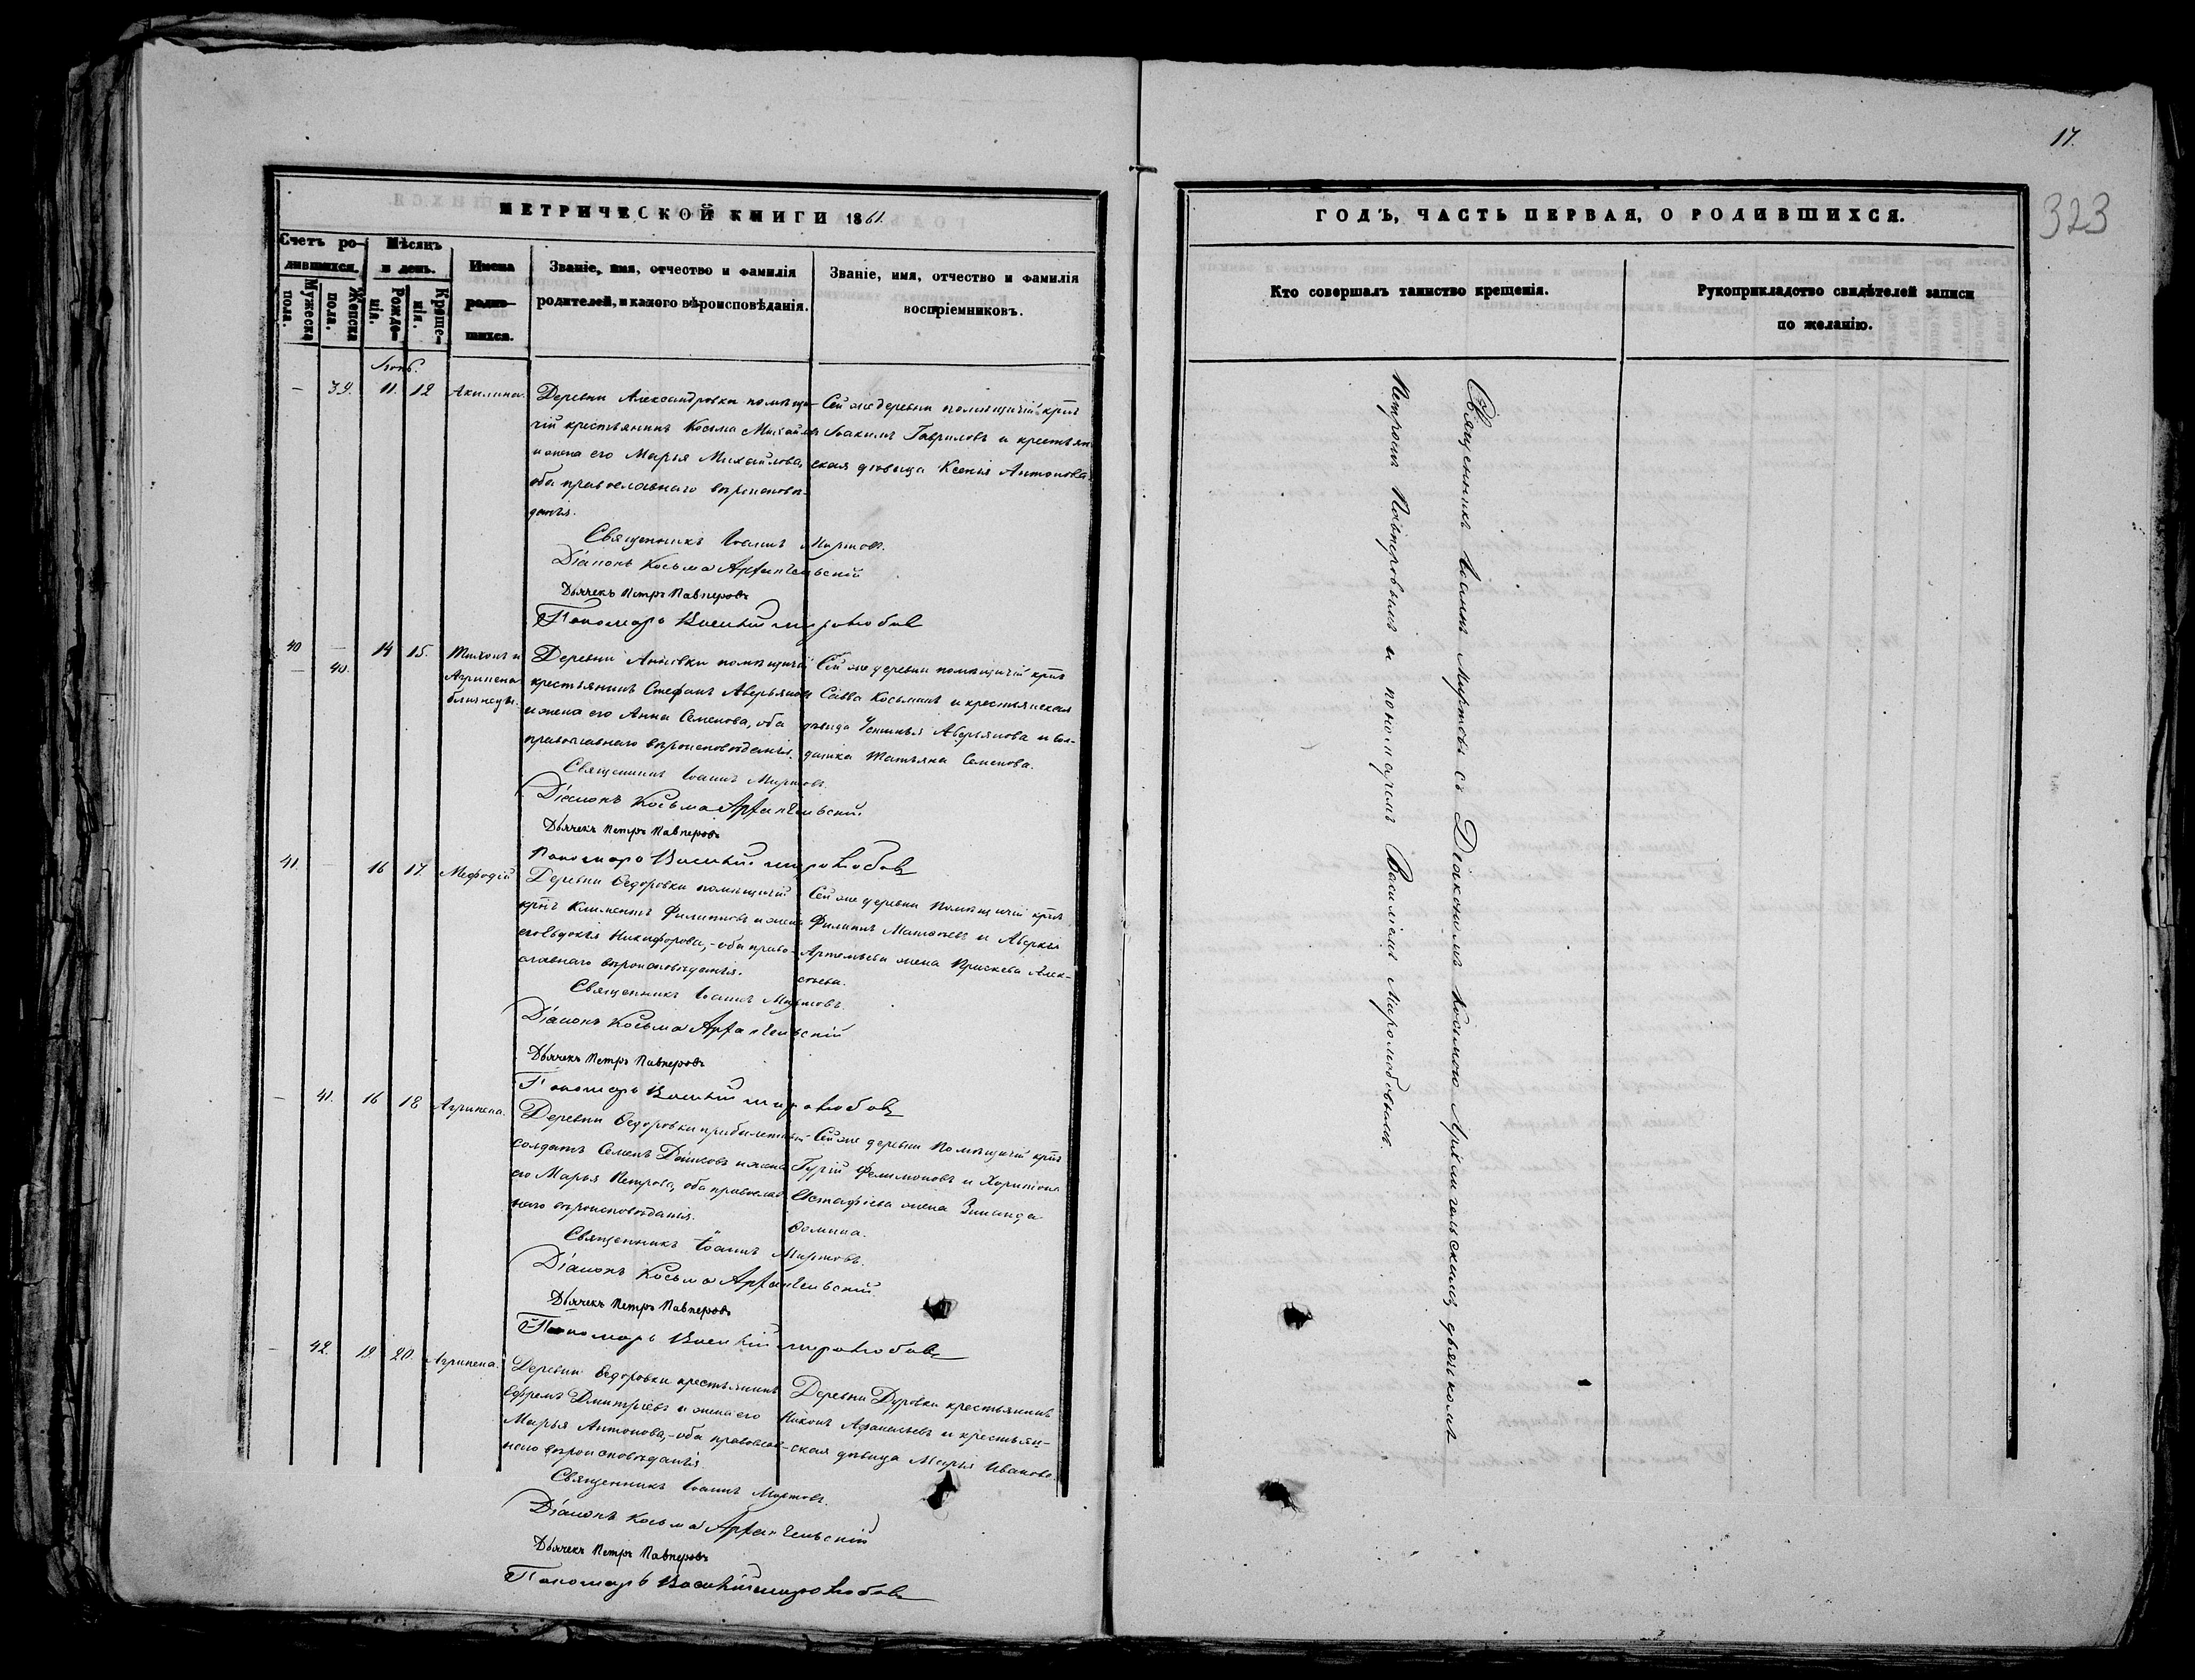 МЕТРИЧЕСКОЙ КНИГИ 1861.
Счетъ ро-
дившихся.
Мужеска
пола.
Женска
пола.
Мѣсяцъ
и день.
Рожде-
нія.
Креще-
нія.
Имена
родив-
шихся.
Званіе, имя, отчество и фамилія
родителей, и какого вѣроисповѣданія.
Званіе, имя, отчество и фамилія
воспріемниковъ.
— 39. 11. 12 Акилина.
Деревни Александровки помѣщи-
чій крестьянинъ Косьма Михайловъ
и жена его Марья Михайлова,
оба православнаго вѣроисповѣ-
данія.
Сей же деревни помѣщичій крнъ
Іоакимъ Гавриловъ и крестьян-
ская дѣвица Ксенія Антонова.
Священникъ Іоаннъ Миртовъ.
Діаконъ Косьма Архангельскій
Дьячекъ Петръ Павперовъ
Пономарь Василій Миролюбовъ
40 — 14 15. Тихонъ и
— 40. Агрипена
близнецы.
Деревни Аннѣвки помѣщичій
крестьянинъ Стефанъ Аверьяновъ
и жена его Анна Семенова, оба
православнаго вѣроисповѣданія.
Сей же деревни помѣщичій крнъ
Савва Косьминъ и крестьянская
дѣвица Устинья Аверьянова и сол-
датка Татьяна Семенова.
Священникъ Іоаннъ Миртовъ.
Діаконъ Косьма Архангельскій.
Дьячекъ Петръ Павперовъ
Пономарь Василій Миролюбовъ
41. — 16 17. Меѳодій
Деревни Ѳедоровки помѣщичій
крнъ Климентъ Филиповъ и жена
его Евдокія Никифорова, - оба право-
славнаго вѣроисповѣданія.
Сей же деревни помѣщичій крнъ
Филипъ Матвѣевъ и Аверкія
Артемьева жена Прискева Алек-
сѣева.
Священникъ Іоаннъ Миртовъ.
Діаконъ Косьма Архангельскій
Дьячекъ Петръ Павперовъ
Пономарь Василій Миролюбовъ
— 41. 16 18 Агрипена.
Деревни Ѳедоровки прибылетный
солдатъ Семенъ и жена
его Марья Петрова, оба православ
наго вѣроисповѣданія.
Сей же деревни помѣщичій крнъ
Гурій Филимоновъ и Харитона
Естафіева жена Зинаида
Ѳомина.
Священникъ Іоаннъ Миртовъ.
Діаконъ Косьма Архангельскій.
Дьячекъ Петръ Павперовъ
Пономарь Василій Миролюбовъ
— 42. 19. 20. Агрипена.
Деревни Ѳедоровки крестьянинъ
Ефремъ Дмитріевъ и жена его
Марья Антонова, - оба православ-
наго вѣроисповѣданія.
Деревни Дуровки крестьянинъ
Никонъ Аѳанасьевъ и крестьян-
ская дѣвица Марья Иванова.
Священникъ Іоаннъ Миртовъ.
Діаконъ Косьма Архангельскій
Дьячекъ Петръ Павперовъ
Пономарь Василій Миролюбовъ
17.
323
ГОДЪ, ЧАСТЬ ПЕРВАЯ, О РОДИВШИХСЯ.
Кто совершалъ таинство крещенія.
Рукоприкладство свидѣтелей записи
по желанію.
Священникъ Іоаннъ Миртовъ съ Діакономъ Косьмою Архангельскимъ, дьячкомъ
Петромъ Павперовымъ и пономаремъ Василіемъ Миролюбовымъ.